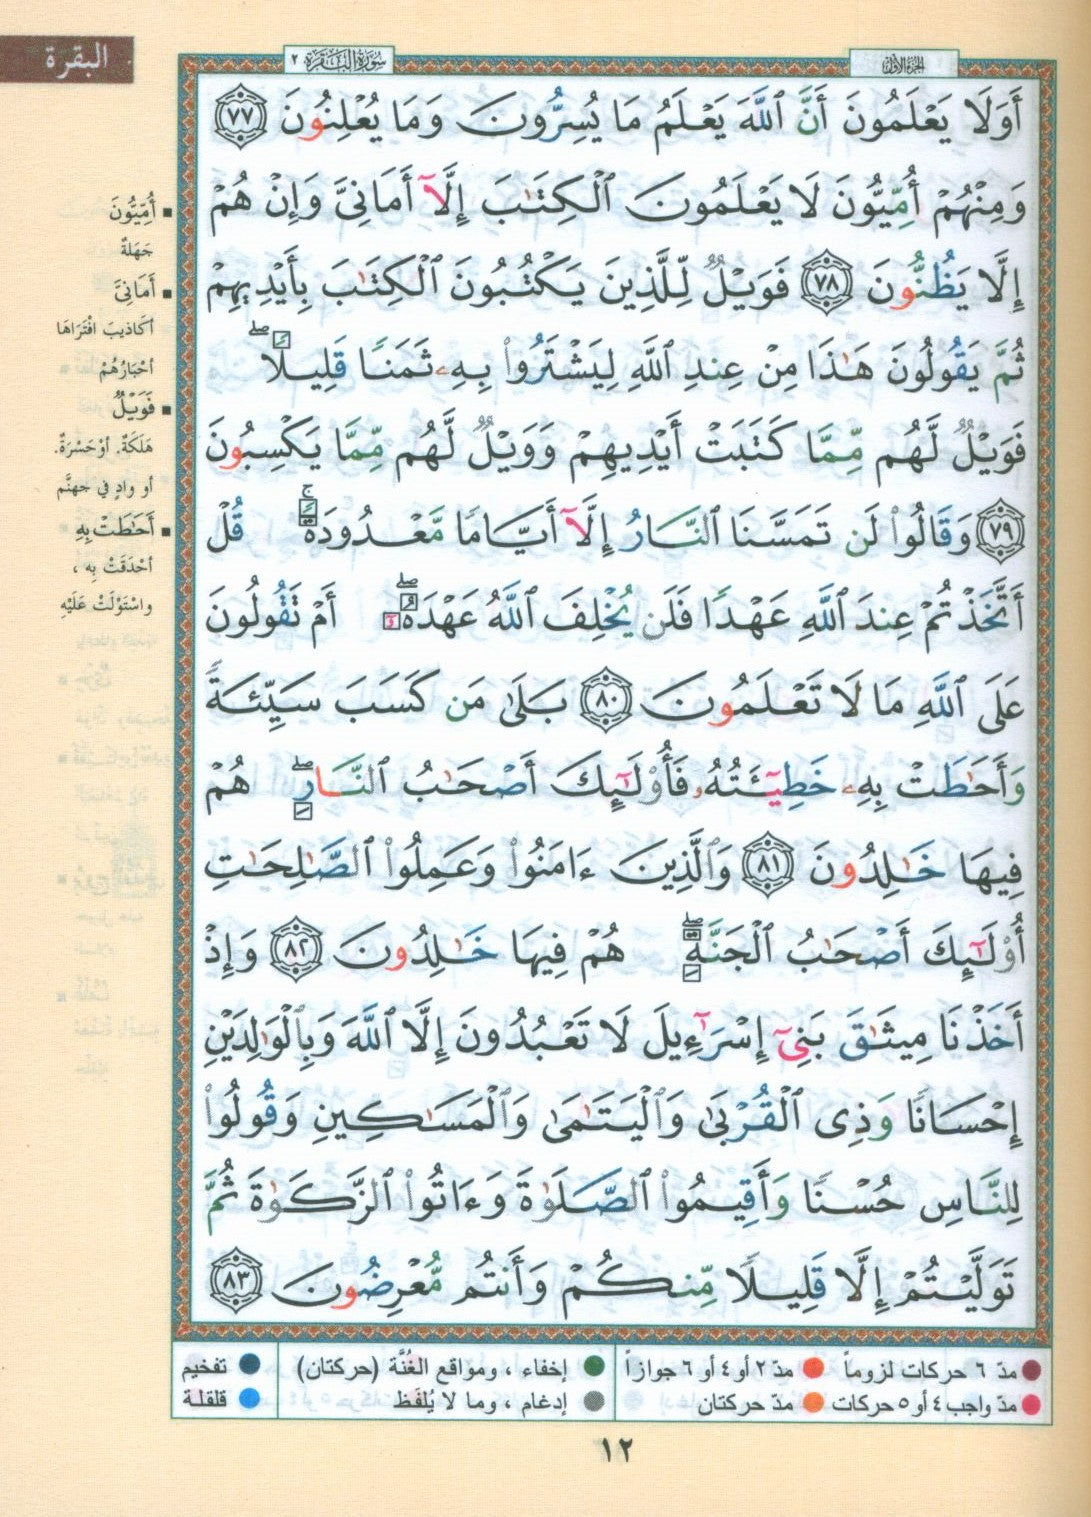 البقرة
سُورَةُ البَقَرَة ٢
الجزء الأول
أَوَلَا يَعْلَمُونَ أَنَّ ٱللَّهَ يَعْلَمُ مَا يُسِرُّونَ وَمَا يُعْلِنُونَ ٧٧
وَمِنْهُمْ أُمِّيُّونَ لَا يَعْلَمُونَ ٱلْكِتَٰبَ إِلَّآ أَمَانِىَّ وَإِنْ هُمْ
إِلَّا يَظُنُّونَ ٧٨ فَوَيْلٌ لِّلَّذِينَ يَكْتُبُونَ ٱلْكِتَٰبَ بِأَيْدِيهِمْ
ثُمَّ يَقُولُونَ هَٰذَا مِنْ عِندِ ٱللَّهِ لِيَشْتَرُوا۟ بِهِۦ ثَمَنًا قَلِيلًا ۖ
فَوَيْلٌ لَّهُم مِّمَّا كَتَبَتْ أَيْدِيهِمْ وَوَيْلٌ لَّهُم مِّمَّا يَكْسِبُونَ
٧٩ وَقَالُوا۟ لَن تَمَسَّنَا ٱلنَّارُ إِلَّآ أَيَّامًا مَّعْدُودَةً ۚ قُلْ
أَتَّخَذْتُمْ عِندَ ٱللَّهِ عَهْدًا فَلَن يُخْلِفَ ٱللَّهُ عَهْدَهُۥٓ ۖ أَمْ تَقُولُونَ
عَلَى ٱللَّهِ مَا لَا تَعْلَمُونَ ٨٠ بَلَىٰ مَن كَسَبَ سَيِّئَةً
وَأَحَٰطَتْ بِهِۦ خَطِيٓـَٔتُهُۥ فَأُو۟لَٰٓئِكَ أَصْحَٰبُ ٱلنَّارِ ۖ هُمْ
فِيهَا خَٰلِدُونَ ٨١ وَٱلَّذِينَ ءَامَنُوا۟ وَعَمِلُوا۟ ٱلصَّٰلِحَٰتِ
أُو۟لَٰٓئِكَ أَصْحَٰبُ ٱلْجَنَّةِ ۖ هُمْ فِيهَا خَٰلِدُونَ ٨٢ وَإِذْ
أَخَذْنَا مِيثَٰقَ بَنِىٓ إِسْرَٰٓءِيلَ لَا تَعْبُدُونَ إِلَّا ٱللَّهَ وَبِٱلْوَٰلِدَيْنِ
إِحْسَانًا وَذِى ٱلْقُرْبَىٰ وَٱلْيَتَٰمَىٰ وَٱلْمَسَٰكِينِ وَقُولُوا۟
لِلنَّاسِ حُسْنًا وَأَقِيمُوا۟ ٱلصَّلَوٰةَ وَءَاتُوا۟ ٱلزَّكَوٰةَ ثُمَّ
تَوَلَّيْتُمْ إِلَّا قَلِيلًا مِّنكُمْ وَأَنتُم مُّعْرِضُونَ ٨٣
أُمِّيُّونَ
جَهَلةٌ
أَمَانِىَّ
أكَاذيبَ افْتَرَاهَا
أحْبَارُهُمْ
فَوَيْلٌ
هَلَكَةٌ. أوْ حَسْرَةٌ.
أو وادٍ في جهنَّم
أَحَٰطَتْ بِهِ
أحْدَقَتْ بِه ،
واسْتَوْلَتْ عَلَيْهِ
مدّ ٦ حركات لزوماً مدّ ٢ أو ٤ أو ٦ جوازاً إخفاء ، ومواقع الغُنَّة (حركتان) تفخيم
مدّ واجب ٤ أو ٥ حركات مدّ حركتان إدغام ، وما لا يُلفَظ قلقلة
١٢